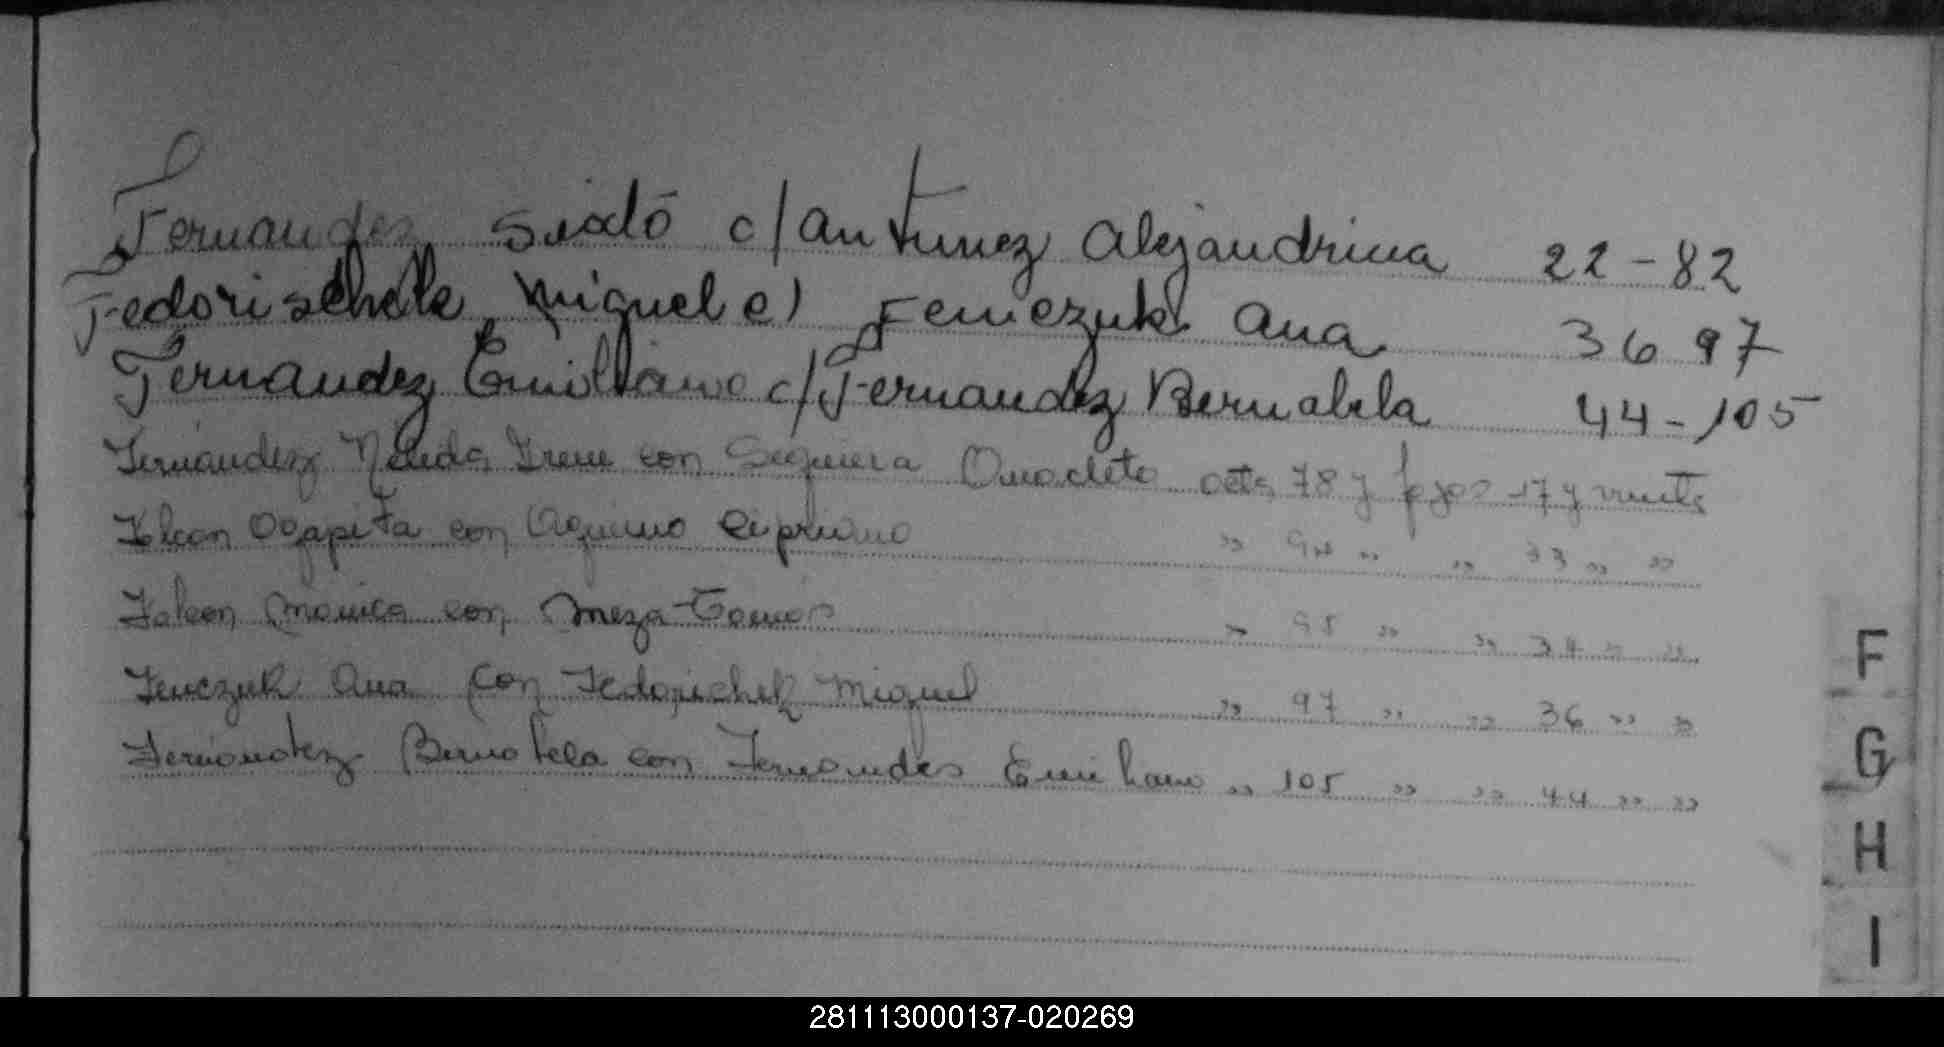 Fernandez Sixto c/ Antunez Alejandrina 22-82
Fedorischek Miguel c/ Femczuk Ana 36 97
Fernandez Emiliano c/ Fernandez Bernabela 44-105
Fernandez Nelida Irene con Sequeira Anacleto acta 78 y fojas 17 y vuelta
Falcon Agapita con Aquino Cipriano " " " 33 " "
Falcon Monica con Meza Tomas " 95 " " 34 " "
Fenczuk Ana con Fedorichek Miguel " 97 " " 36 " "
Fernandez Bernabela con Fernandes Emiliano " 105 " " 44 " "
F
G
H
I
281113000137-020269